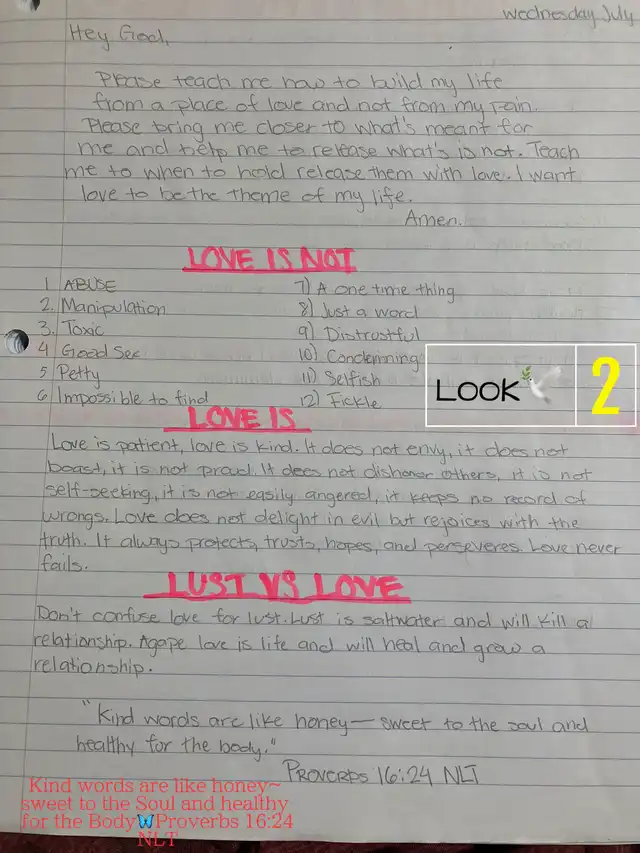 Wednesday July
Hey God,
Please teach me how to build my life
from a place of love and not from my pain.
Please bring me closer to what's meant for
me and help me to release what's is not. Teach
me to when to hold release them with love. I want
love to be the theme of my life.
Amen.
LOVE IS NOT
1 ABUSE
2. Manipulation
3. Toxic
4 Good Sex
5 Petty
6 Impossible to find
7) A one time thing
8) Just a word
9) Distrustful
10) Condemning
11) Selfish
12) Fickle
LOOK 2
LOVE IS
Love is patient, love is kind. It does not envy, it does not
boast, it is not proud. It does not dishonor others, it is not
self-seeking, it is not easily angered, it keeps no record of
wrongs. Love does not delight in evil but rejoices with the
truth. It always protects, trusts, hopes, and perseveres. Love never
fails.
LUST VS LOVE
Don't confuse love for lust. Lust is saltwater and will kill a
relationship. Agape love is life and will heal and grow a
relationship.
"Kind words are like honey— sweet to the soul and
healthy for the body."
PROVERBS 16:24 NLT
Kind words are like honey~
sweet to the Soul and healthy
for the Body🦋Proverbs 16:24
NLT